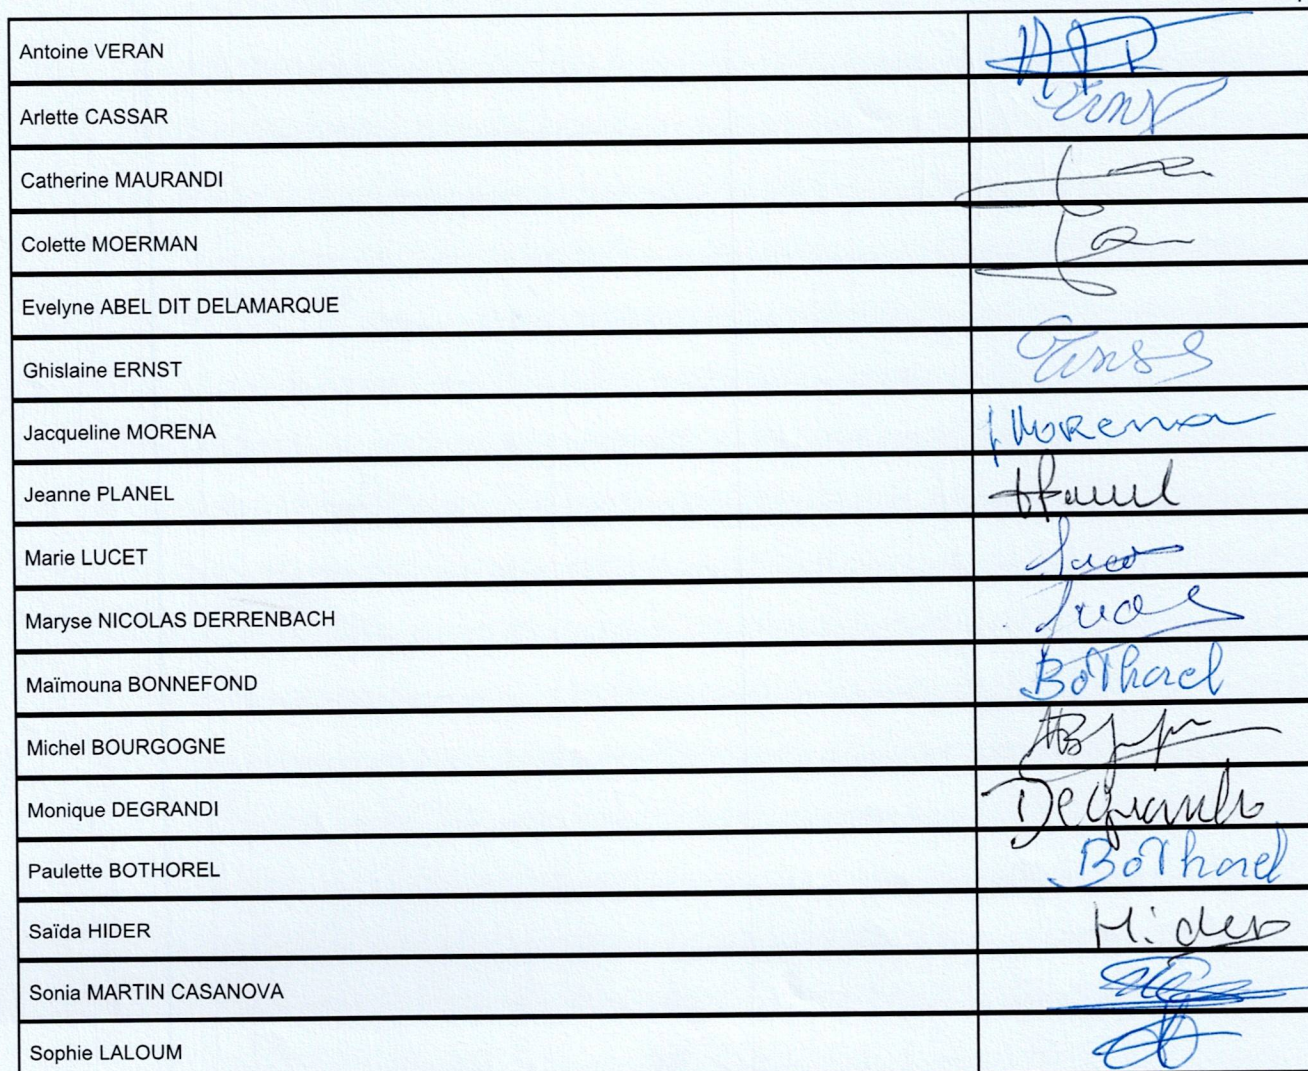 Antoine VERAN
Arlette CASSAR
Catherine MAURANDI
Colette MOERMAN
Evelyne ABEL DIT DELAMARQUE
Ghislaine ERNST
Jacqueline MORENA J Morena
Jeanne PLANEL
Marie LUCET
Maryse NICOLAS DERRENBACH
Maïmouna BONNEFOND Bothorel
Michel BOURGOGNE
Monique DEGRANDI Degrandi
Paulette BOTHOREL Bothorel
Saïda HIDER Hider
Sonia MARTIN CASANOVA
Sophie LALOUM